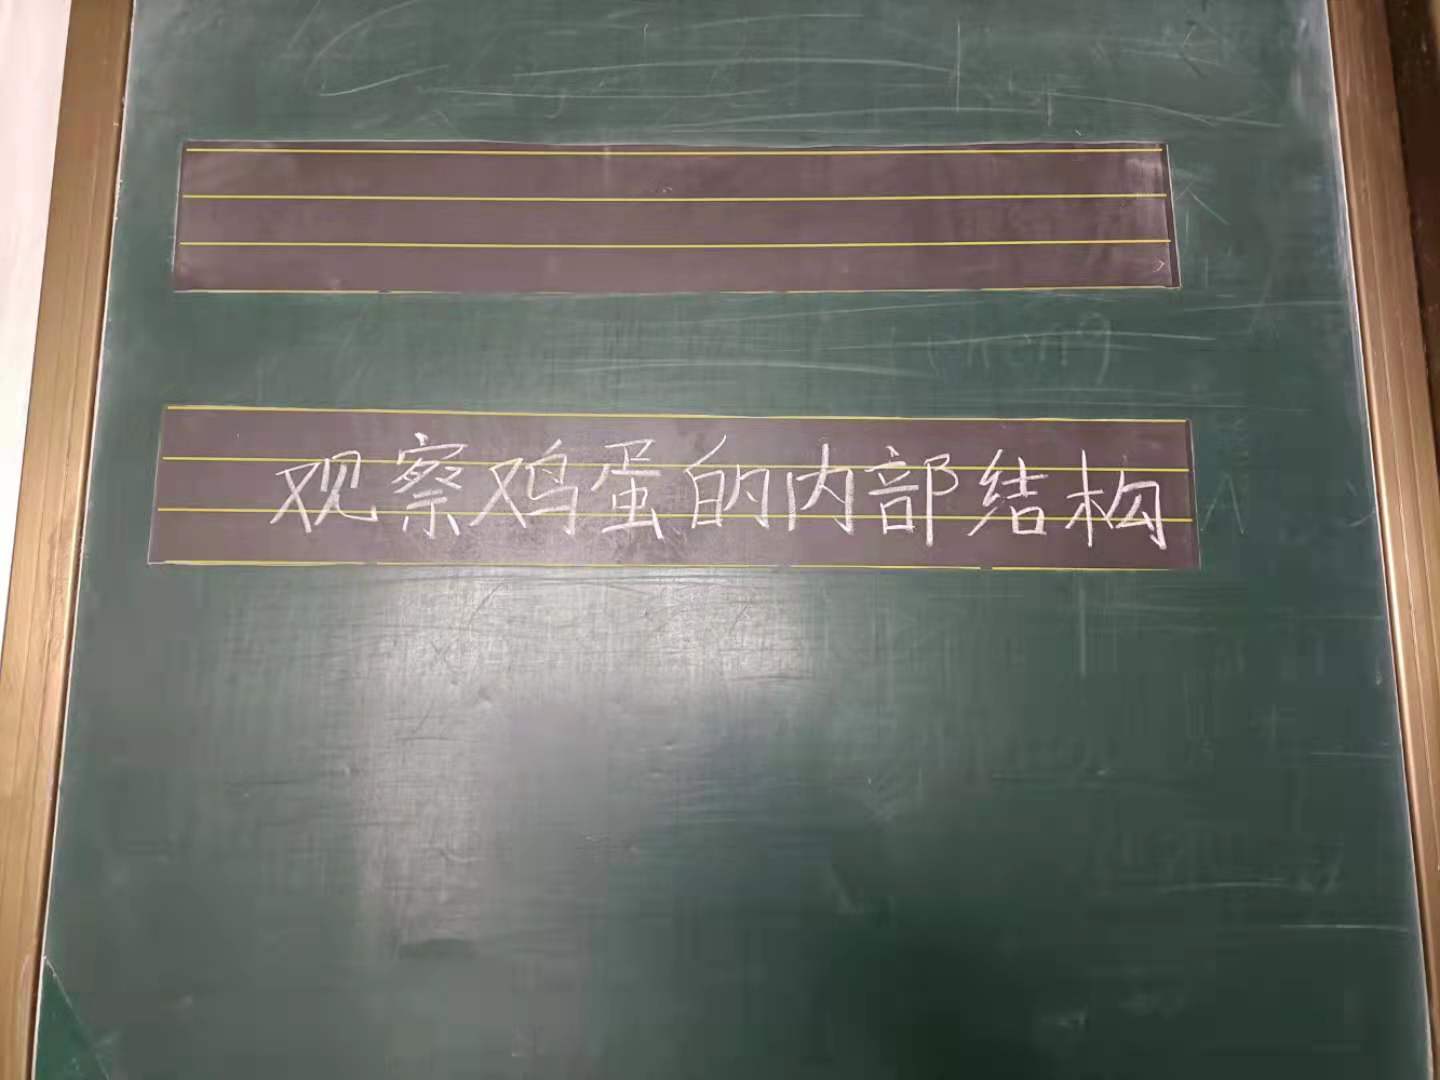 观察鸡蛋的内部结构